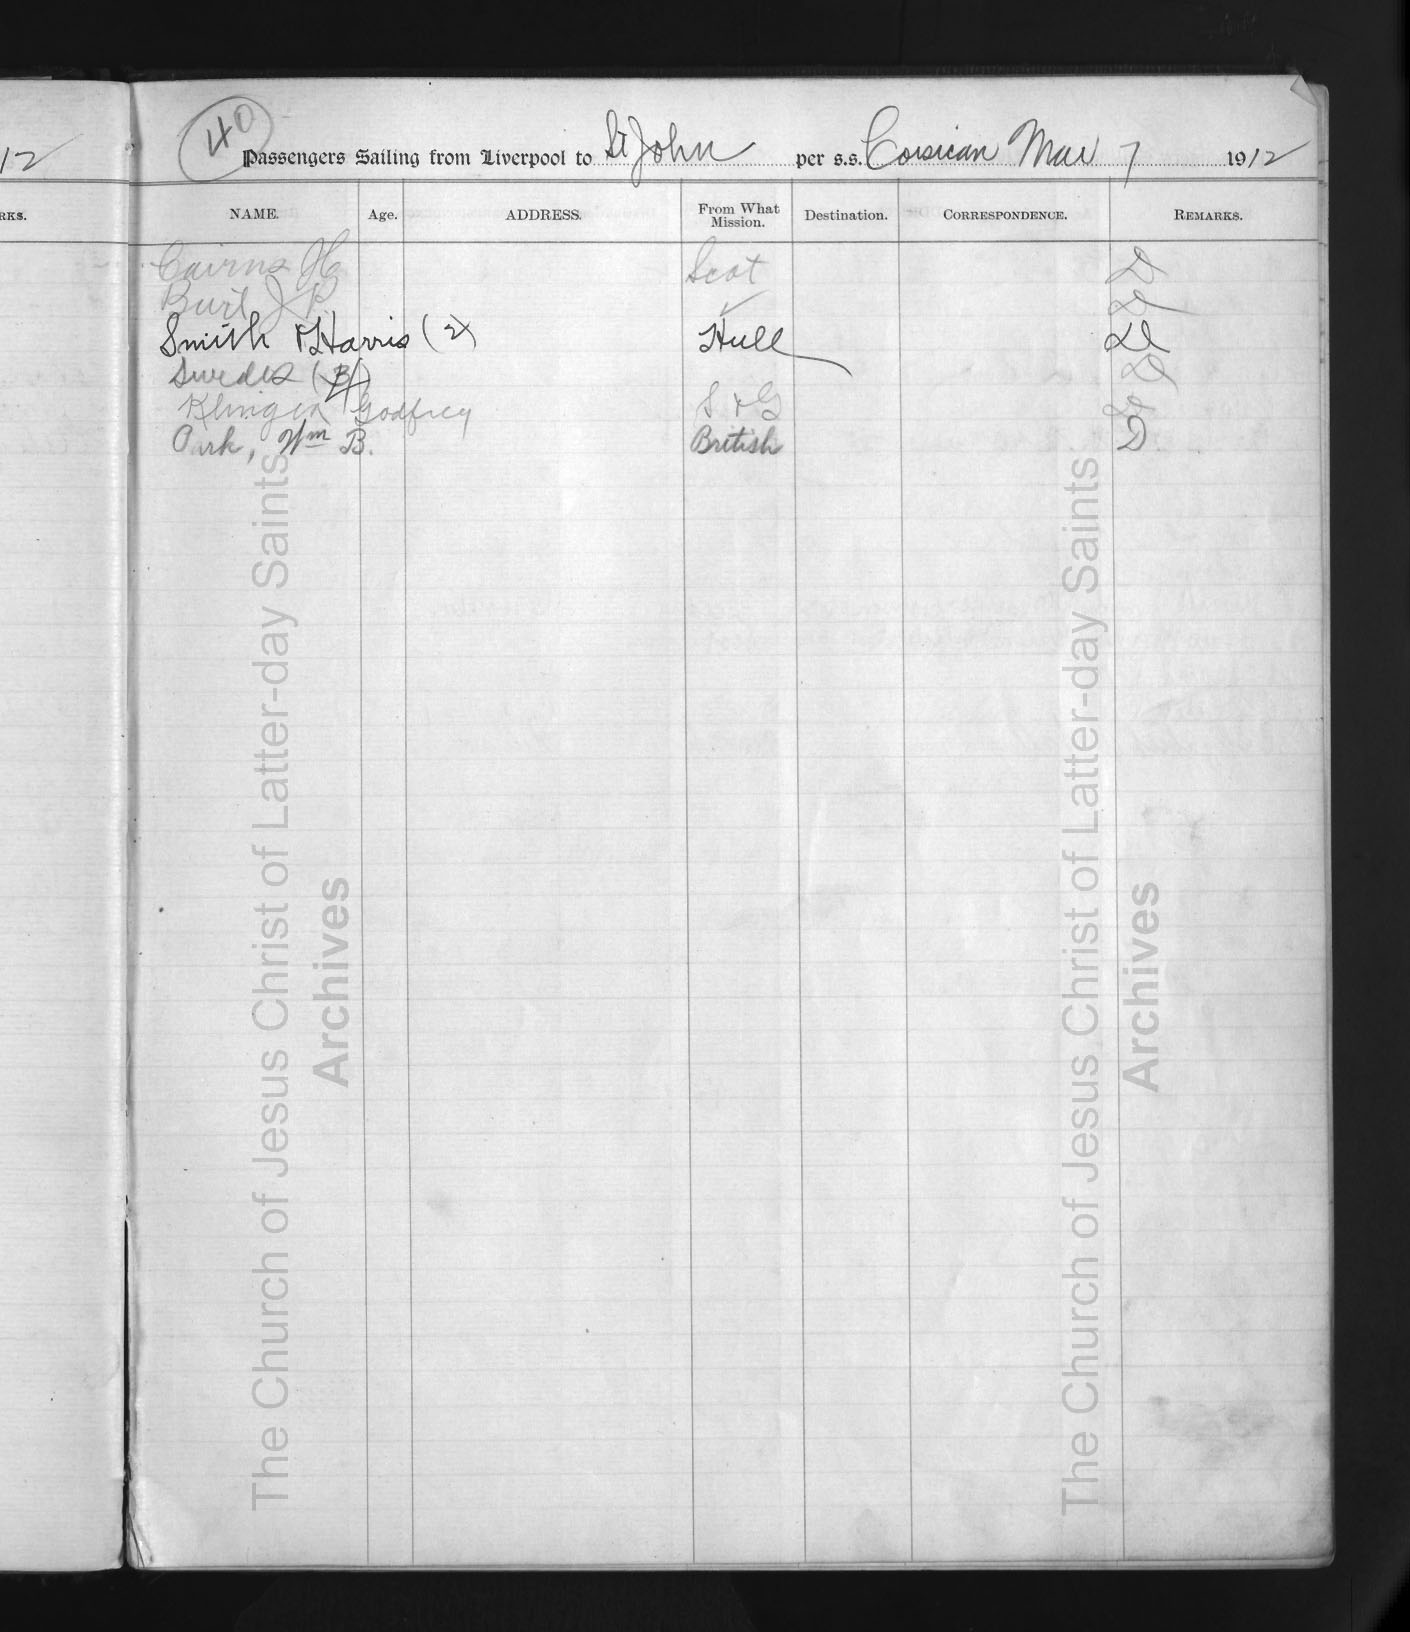 12
40
Passengers Sailing from Liverpool to St John per s.s. Corsican Mar 7 1912
RKS.
NAME. Age. ADDRESS. From What Mission. Destination. CORRESPONDENCE. REMARKS.
Cairns Scot D
Burt J P. ✓
Smith & Harris (2) Hull
Swedes
Klinger Godfrey S & G
Park, Wm B. British D
The Church of Jesus Christ of Latter-day Saints
Archives
The Church of Jesus Christ of Latter-day Saints
Archives